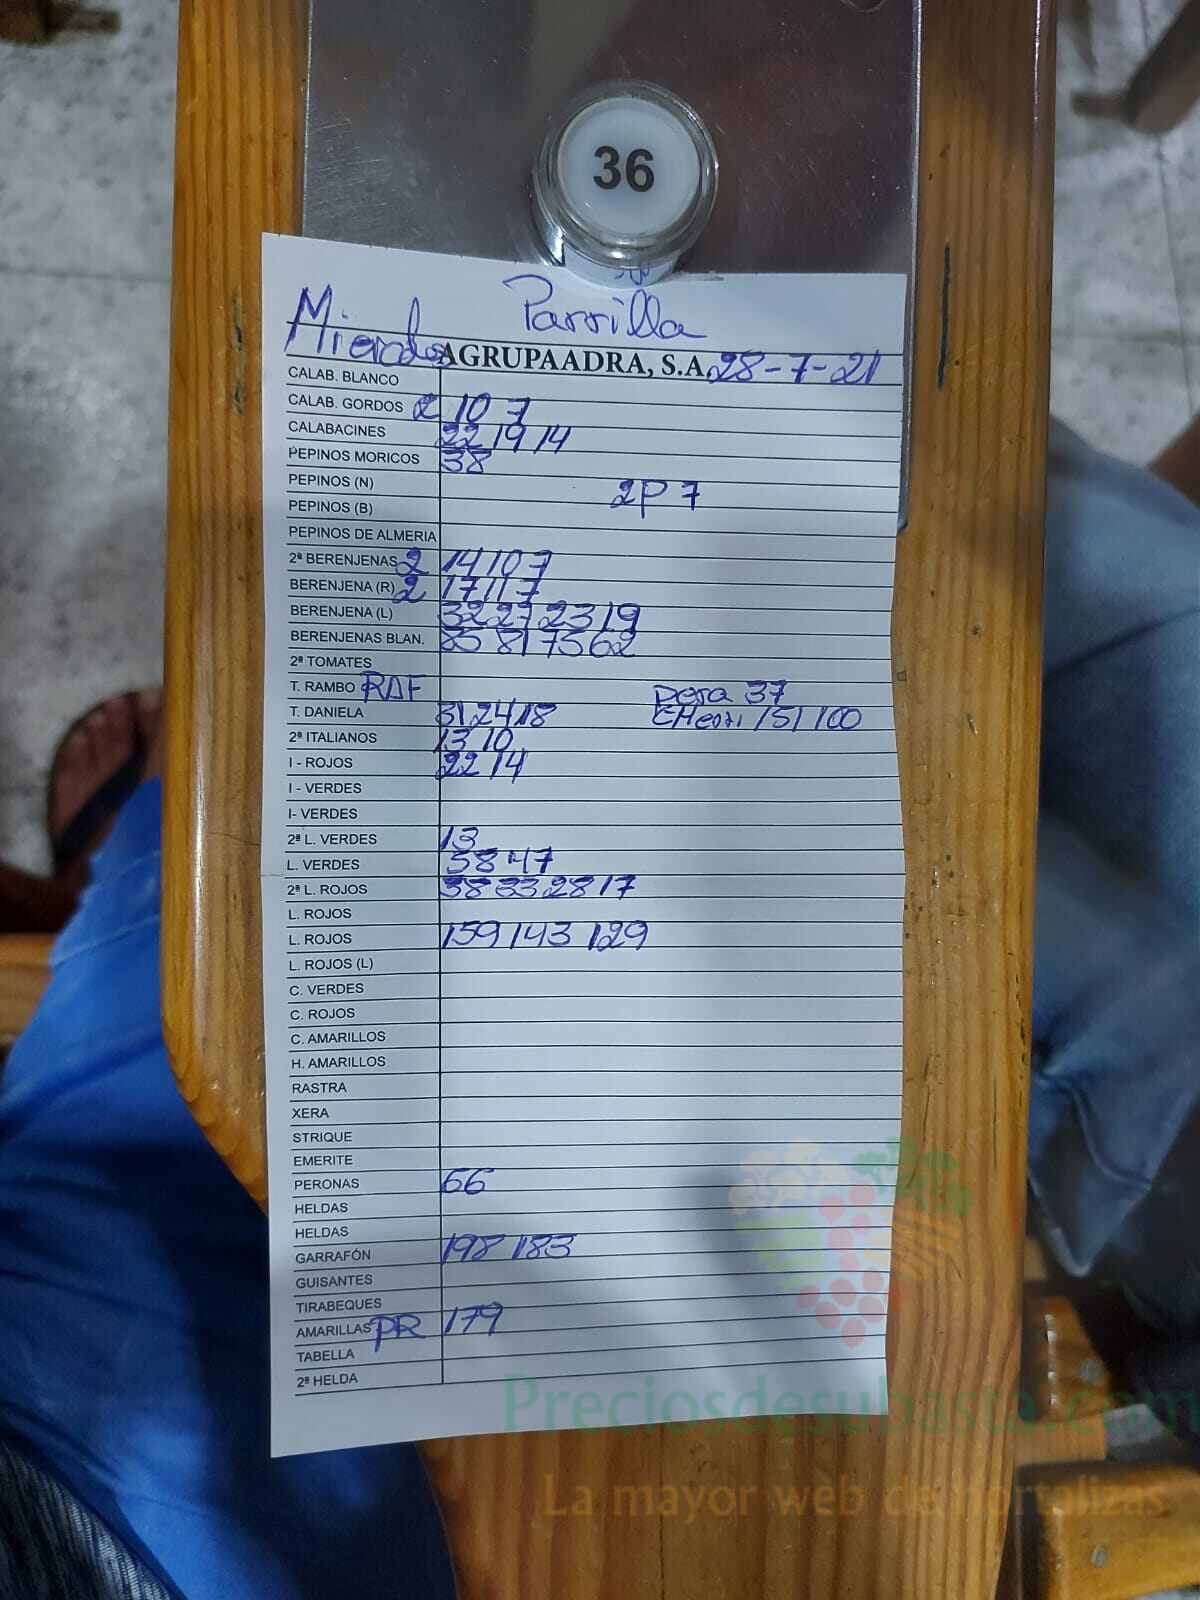 36
Parrilla
Miercoles AGRUPAADRA, S.A. 28-7-21
CALAB. BLANCO
CALAB. GORDOS 2 10 7
CALABACINES 22 19 14
PEPINOS MORICOS 38
PEPINOS (N) 2P 7
PEPINOS (B)
PEPINOS DE ALMERIA
2ª BERENJENAS 2 14 10 7
BERENJENA (R) 2 17 11 7
BERENJENA (L) 32 27 23 19
BERENJENAS BLAN. 85 81 73 62
2ª TOMATES
T. RAMBO RAF Pera 37
T. DANIELA 31 24 18 151 100
2ª ITALIANOS 13 10
I - ROJOS 22 14
I - VERDES
I- VERDES
2ª L. VERDES 13
L. VERDES 58 47
2ª L. ROJOS 38 33 28 17
L. ROJOS
L. ROJOS 159 143 129
L. ROJOS (L)
C. VERDES
C. ROJOS
C. AMARILLOS
H. AMARILLOS
RASTRA
XERA
STRIQUE
EMERITE
PERONAS 66
HELDAS
HELDAS
GARRAFÓN 198 183
GUISANTES
TIRABEQUES
AMARILLAS PR 179
TABELLA
2ª HELDA
Preciosdesubasta.com
La mayor web de hortalizas